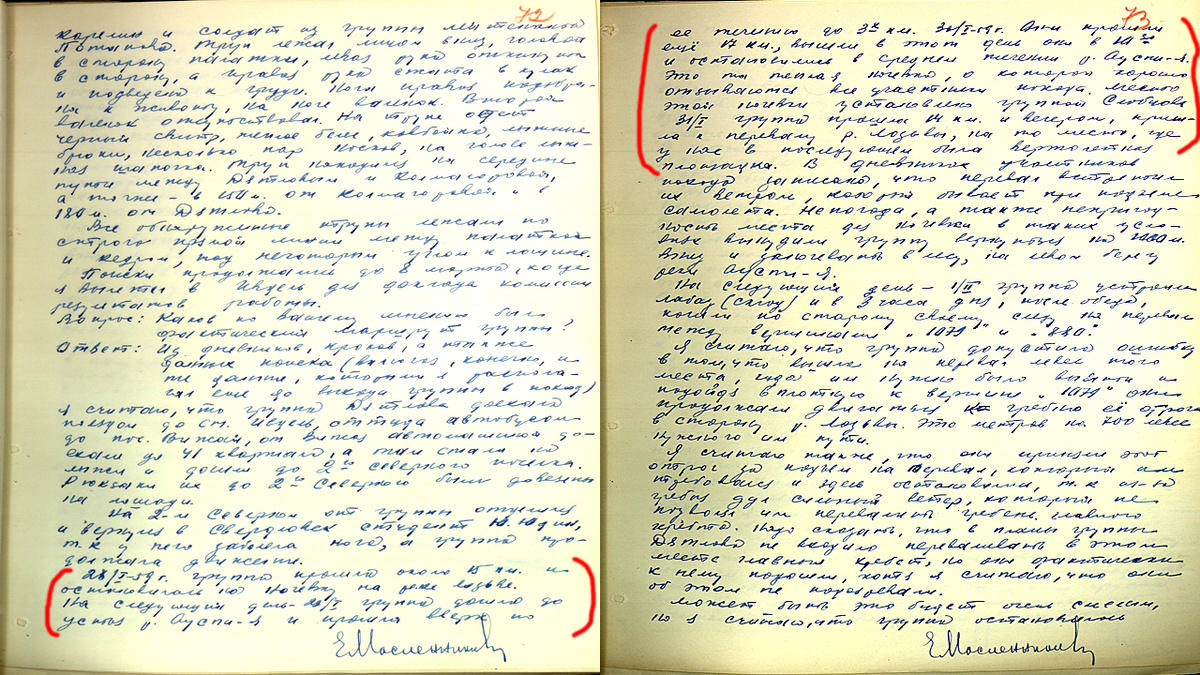 72
Карелин и солдат из группы лейтенанта
Потапова. Труп лежал лицом вниз, головой
в сторону палатки, левая рука откинута
в сторону, а правая рука сжата в кулак
и подведена к груди. Нога правая подобра-
на к животу, на ноге валенок. Второй
валенок отсутствовал. На трупе одет
черный свитр, теплое белье, ковбойка, лыжные
брюки, несколько пар носков, на голове лыж-
ная шапочка. Труп находился на середине
пути между Дятловым и Колмогоровой,
а точнее - в 150 м. от Колмогоровой и в
180 м. от Дятлова.
Все обнаруженные трупы лежали по
строго прямой линии между палаткой
и кедром, под некоторым углом к лощине.
Поиски продолжались до 8 марта, когда
я вылетел в Ивдель для доклада комиссии
результатов работы.
Вопрос: Каков по Вашему мнению был
фактический маршрут группы?
Ответ: Из дневников, кроков, а также
данных поиска (включая, конечно, и
те данные, которыми я распола-
гал еще до выхода группы в поход)
я считаю, что группа Дятлова доехала
поездом до ст. Ивдель, оттуда автобусом
до пос. Вижай, от Вижая автомашиной до-
ехали до 41 квартала, а там стали на
лыжи и дошли до 2го Северного поселка.
Рюкзаки их до 2го Северного были довезены
на лошади.
На 2-м Северном от группы отделился
и вернулся в Свердловск студент Ю. Юдин,
т.к. у него заболела нога, а группа про-
должала движение.
28/I-59 г. группа прошла около 15 км. и
остановилась на ночевку на реке Лозьве.
На следующий день - 29/I группа дошла до
устья р. Ауспи-Я и прошла вверх по
Е Масленников
73
ее течению до 3х км. 30/I-59 г. Они прошли
ещё 17 км., вышли в этот день они в 10 00
и остановились в среднем течении р. Ауспи-Я.
Это та теплая ночевка, о которой хорошо
отзываются все участники похода. Место
этой ночевки установлено группой Слобцова.
31/I группа прошла 14 км. и вечером, приш-
ла к перевалу р. Лозьвы, на то место, где
у нас в последующем была вертолетная
площадка. В дневниках участников
похода записано, что перевал встретил
их ветром, который бывает при подъеме
самолета. Непогода, а также непригод-
ность места для ночевки в таких усло-
виях вынудили группу вернуться на
вниз и заночевать в лесу, на левом берегу
реки Ауспи-Я.
На следующий день - 1/II группа устроила
лабаз (склад) и в 3 часа дня, после обеда,
пошли по старому своему следу на перевал
между вершинами "1079" и "880".
Я считаю, что группа допустила ошибку
в том, что вышла на перевал левее того
места, куда им нужно было выйти и
подойдя вплотную к вершине "1079" они
продолжали двигаться гребню её отрога
в сторону р. Лозьвы. Это метров на 500 левее
нужного им пути.
Я считаю также, что они приняли этот
отрог за подъем на перевал, который им
требовался и здесь остановились, т.к. из-за
гребня дул сильный ветер, который не
позволял им перевалить гребень главного
хребта. Надо сказать, что в планы группы
Дятлова не входило переваливать в этом
месте главный хребет, но они фактически
к нему подошли, хотя я считаю, что они
об этом не подозревали.
Может быть это будет очень смелым,
но я считаю, что группа остановилась
Е Масленников